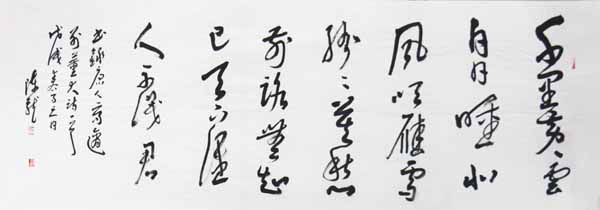 千里黄雲
白日曛北
風吹雁雪
紛紛莫愁
前路無知
己天下谁
人不識君
书錄唐人高適
别董大诗一首
戊戌